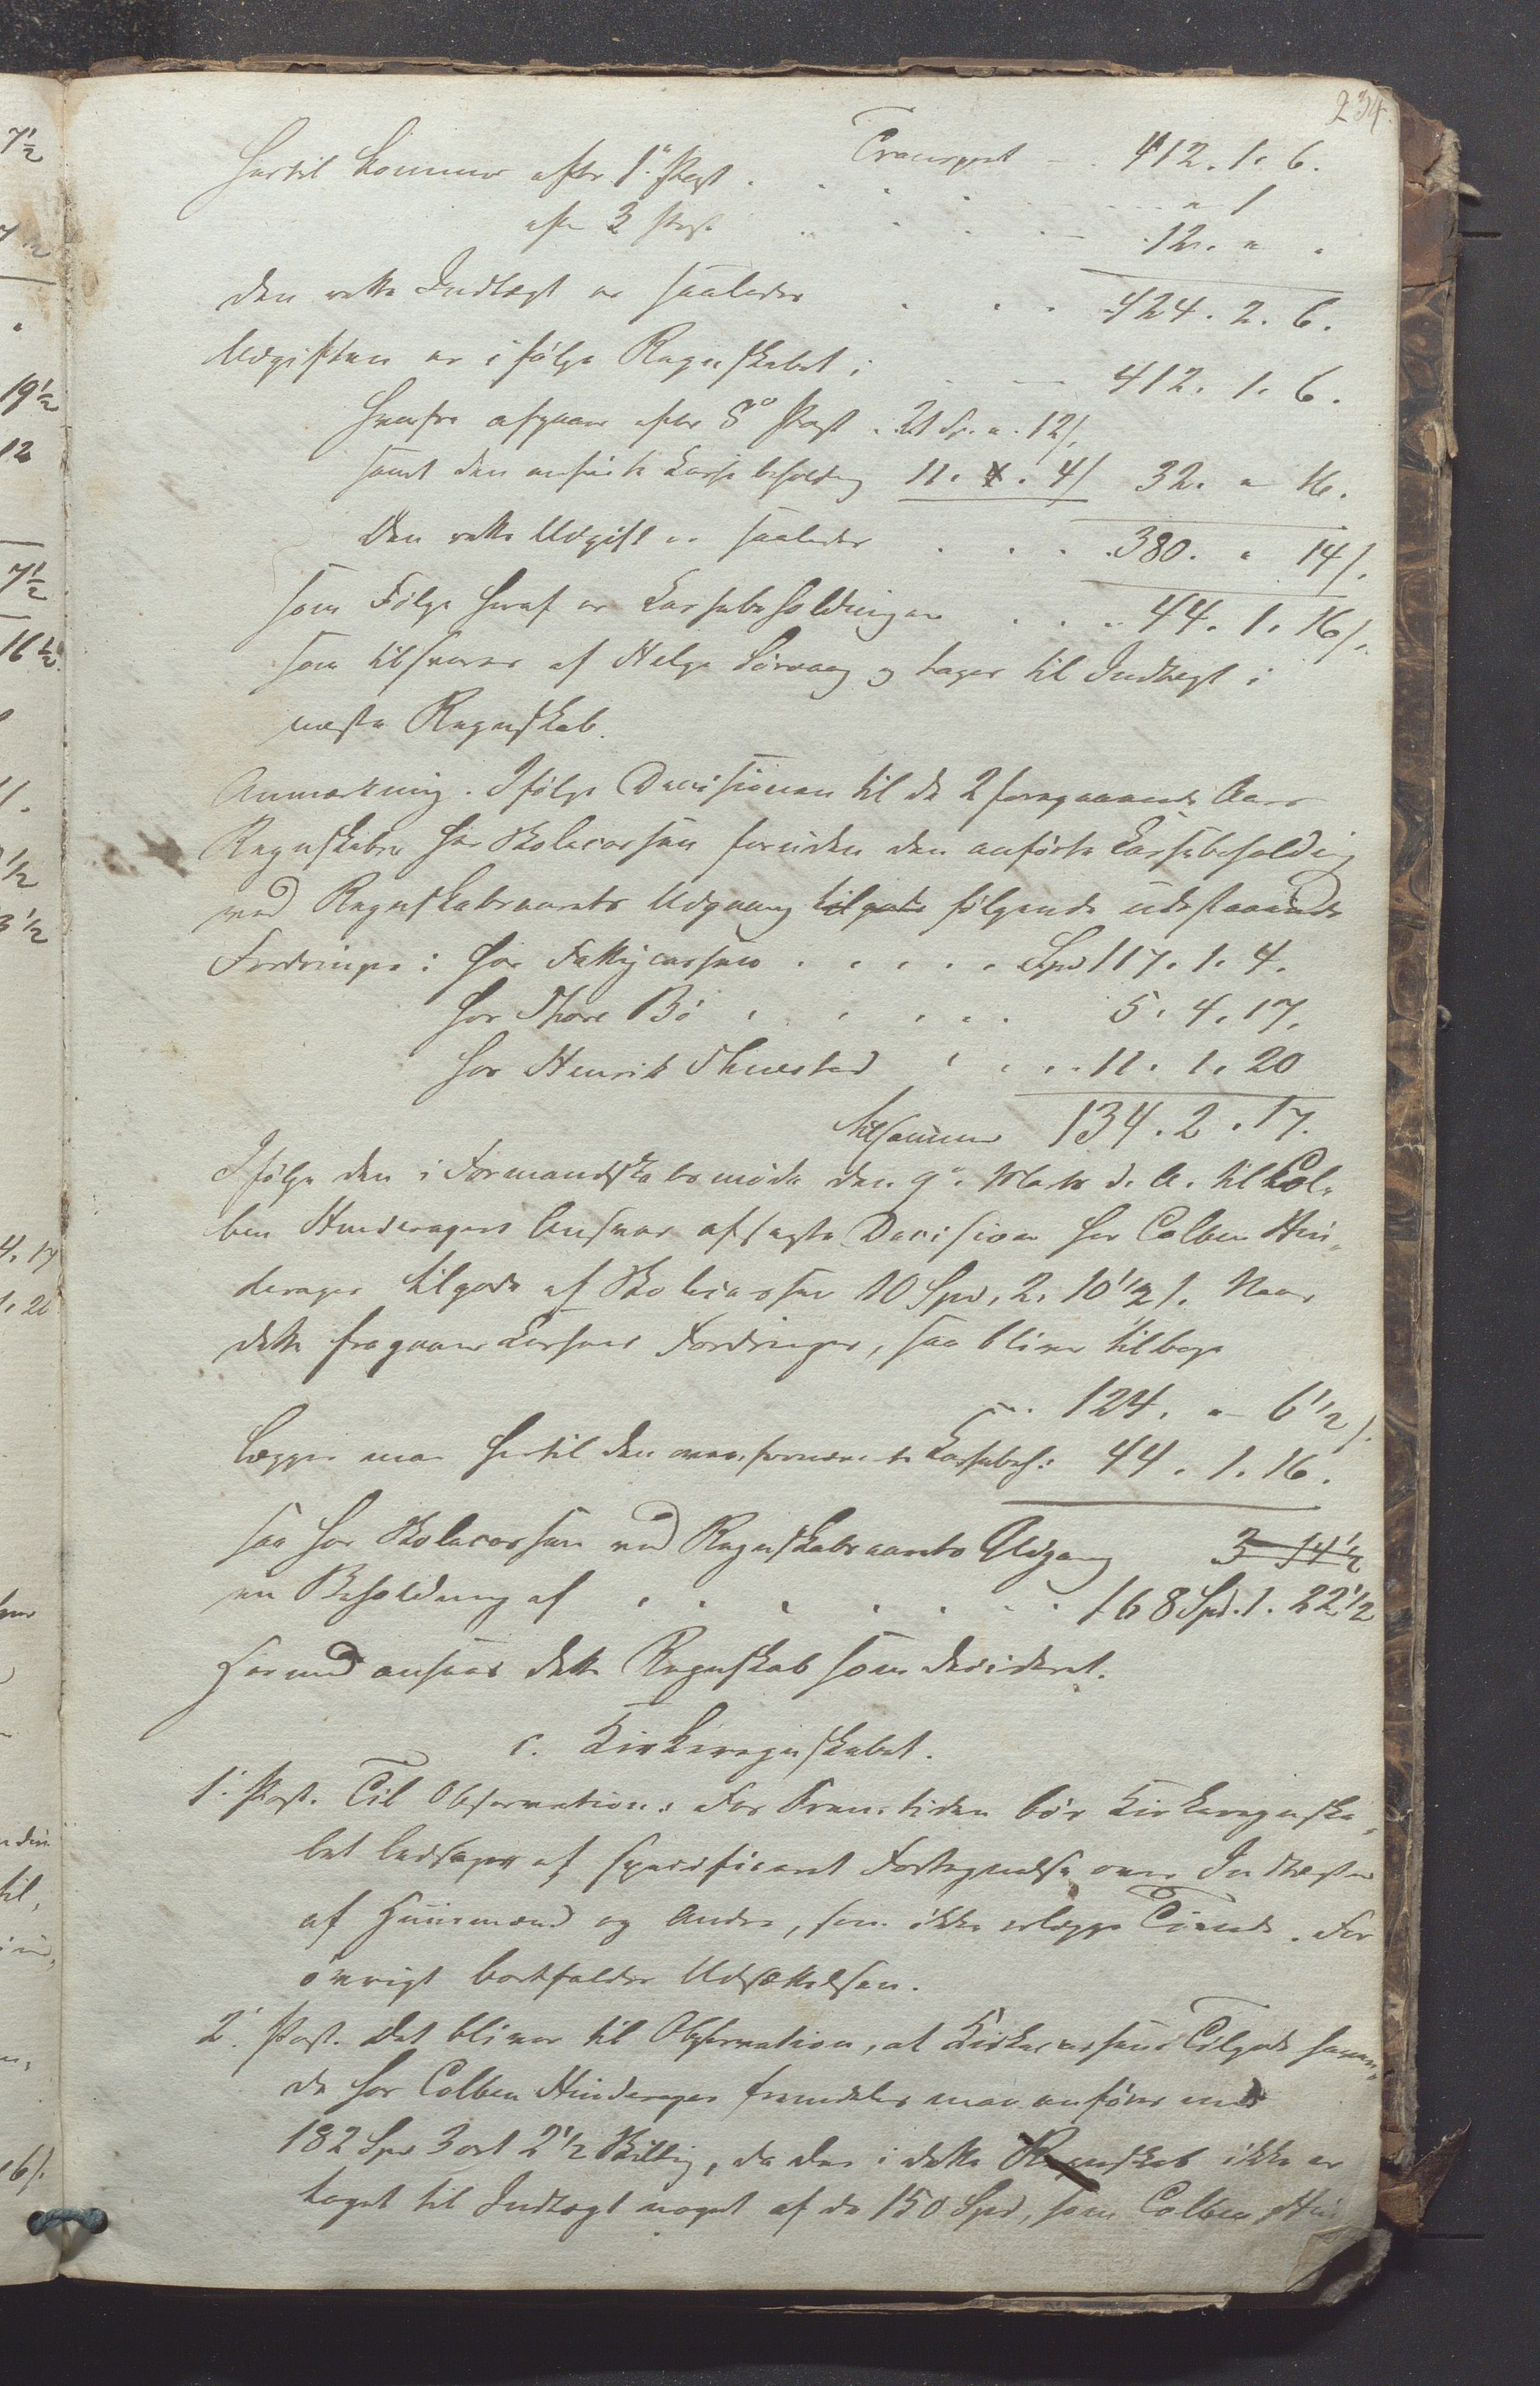 234.
Transport - . 412. 1. 6.
Hertil kommer efter 1ste Post . . . . . " 1
efter 3 Post . . . . . 12. " .
Den rette Indtægt er saaledes . . . 424. 2. 6.
Udgiften er i følge Regnskabet: . . 412. 1. 6.
Herfra afgaaer efter 8de Post . 21 Sp. " . 12 /.
samt den anførte Kassebeholdng 11. " . 4 / 32. " 16.
Den rette Udgift er saaledes . . . . 380. " 14 /.
som Følge heraf er Kassebeholdningen . . . 44. 1. 16 /.
som tilsvares af Helge Sørvaag og tages til Indtægt i
næste Regnskab.
Anmærkning. Ifølge Decisionen til de 2 foregaaende Aars
Regnskaber har Skolecassen foruden den anførte Kassebeholdng
ved Regnskabsaarets Udgang tilgode følgende udestaaende
Fordringer: hos Fattigcassen . . . . . Spd 117. 1. 4.
hos Thore Bö . . . . . . 5. 4. 17.
hos Henrik Thuestad . . . . 11. 1. 20
tilsammen 134. 2. 17.
Ifølge den i Formandskabsmøde den 9de Marts d. A. til Col-
ben Hinderagers Ansvar afsagte Decision har Colben Hin-
derager tilgode af Skolecassen 10 Spd. 2. 10 1/2 /. Naar
dette fragaaer Cassens Fordringer, saa bliver tilbage
. . . 124. " 6 1/2 /.
Lægger man hertil den ovenfornævnte Kassebeh: 44. 1. 16.
saa har Skolecassen ved Regnskabsaarets Udgang 3 14 1/2
en Beholdning af . . . . . . . 168 Spd. 1. 22 1/2
Hermed ansees dette Regnskab som decideret.
c. Kirkeregnskabet.
1. Post. Til Observation: For Fremtiden bør Kirkeregnska-
bet ledsages af specificeret Fortegnelse over Indtægter
af Huusmænd og Andre, som ikke erlægge Tiende. For
øvrigt bortfalder Udsættelsen.
2. Post. Det bliver til Observation, at Kirkecassens Tilgodehaven-
de hos Colben Hinderager fremdeles maa anføres med
182 Spd 3 ort 2 1/2 Skilling, da der i dette Regnskab ikke er
taget til Indtægt noget af de 150 Spd, som Colben Hin-